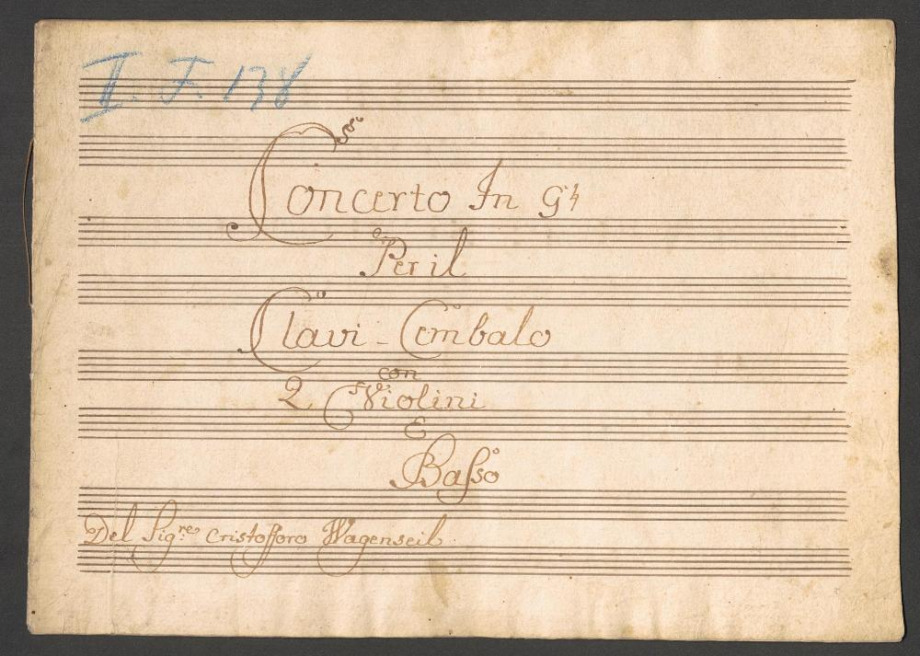 II. F. 138
Concerto In G♮
Per il
Clavi-Cembalo
con
2 Violini
E
Baſso
Del Sig:re Cristofforo Wagenseil.